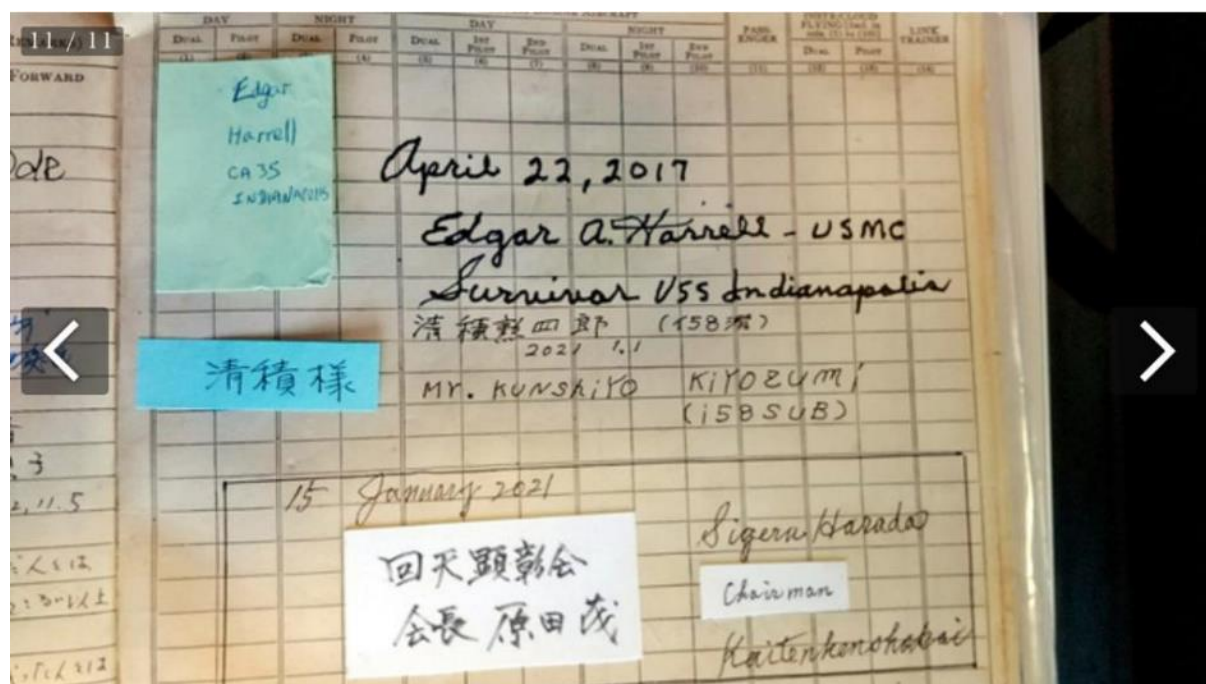 11 / 11
DAY
NIGHT
DAY
NIGHT
PASS-
ENGER
LINK
TRAINER
DUAL
PILOT
DUAL
PILOT
DUAL
1ST
PILOT
2ND
PILOT
DUAL
1ST
PILOT
2ND
PILOT
DUAL
PILOT
FORWARD
Edgar
Harrell
CA 35
INDIANAPOLIS
April 22, 2017
Edgar A. Harrell - USMC
Survivor USS Indianapolis
清積勲四郎 (イ58潜)
2021 1.1
清積様
Mr. KUNSHiYO KiYOZUMi
(i58SUB)
15 January 2021
Sigeru Harada
回天顕彰会
会長 原田茂
Chairman
Kaitenkenshokai